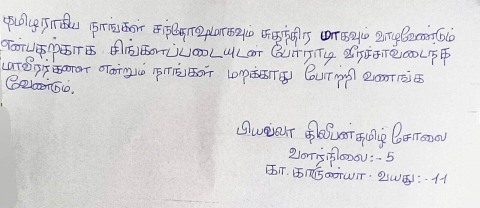 தமிழராகிய நாங்கள் சந்தோஷமாகவும் சுதந்திர மாகவும் வாழவேண்டும்
என்பதற்காக சிங்களப்படையுடன் போராடி வீரச்சாவடைந்த
மாவீரர்களை என்றும் நாங்கள் மறக்காது போற்றி வணங்க
வேண்டும்.
பியவ்வா திலீபன்தமிழ் சோலை
வளர்நிலை:- 5
கா. காருண்யா. வயது:- 11